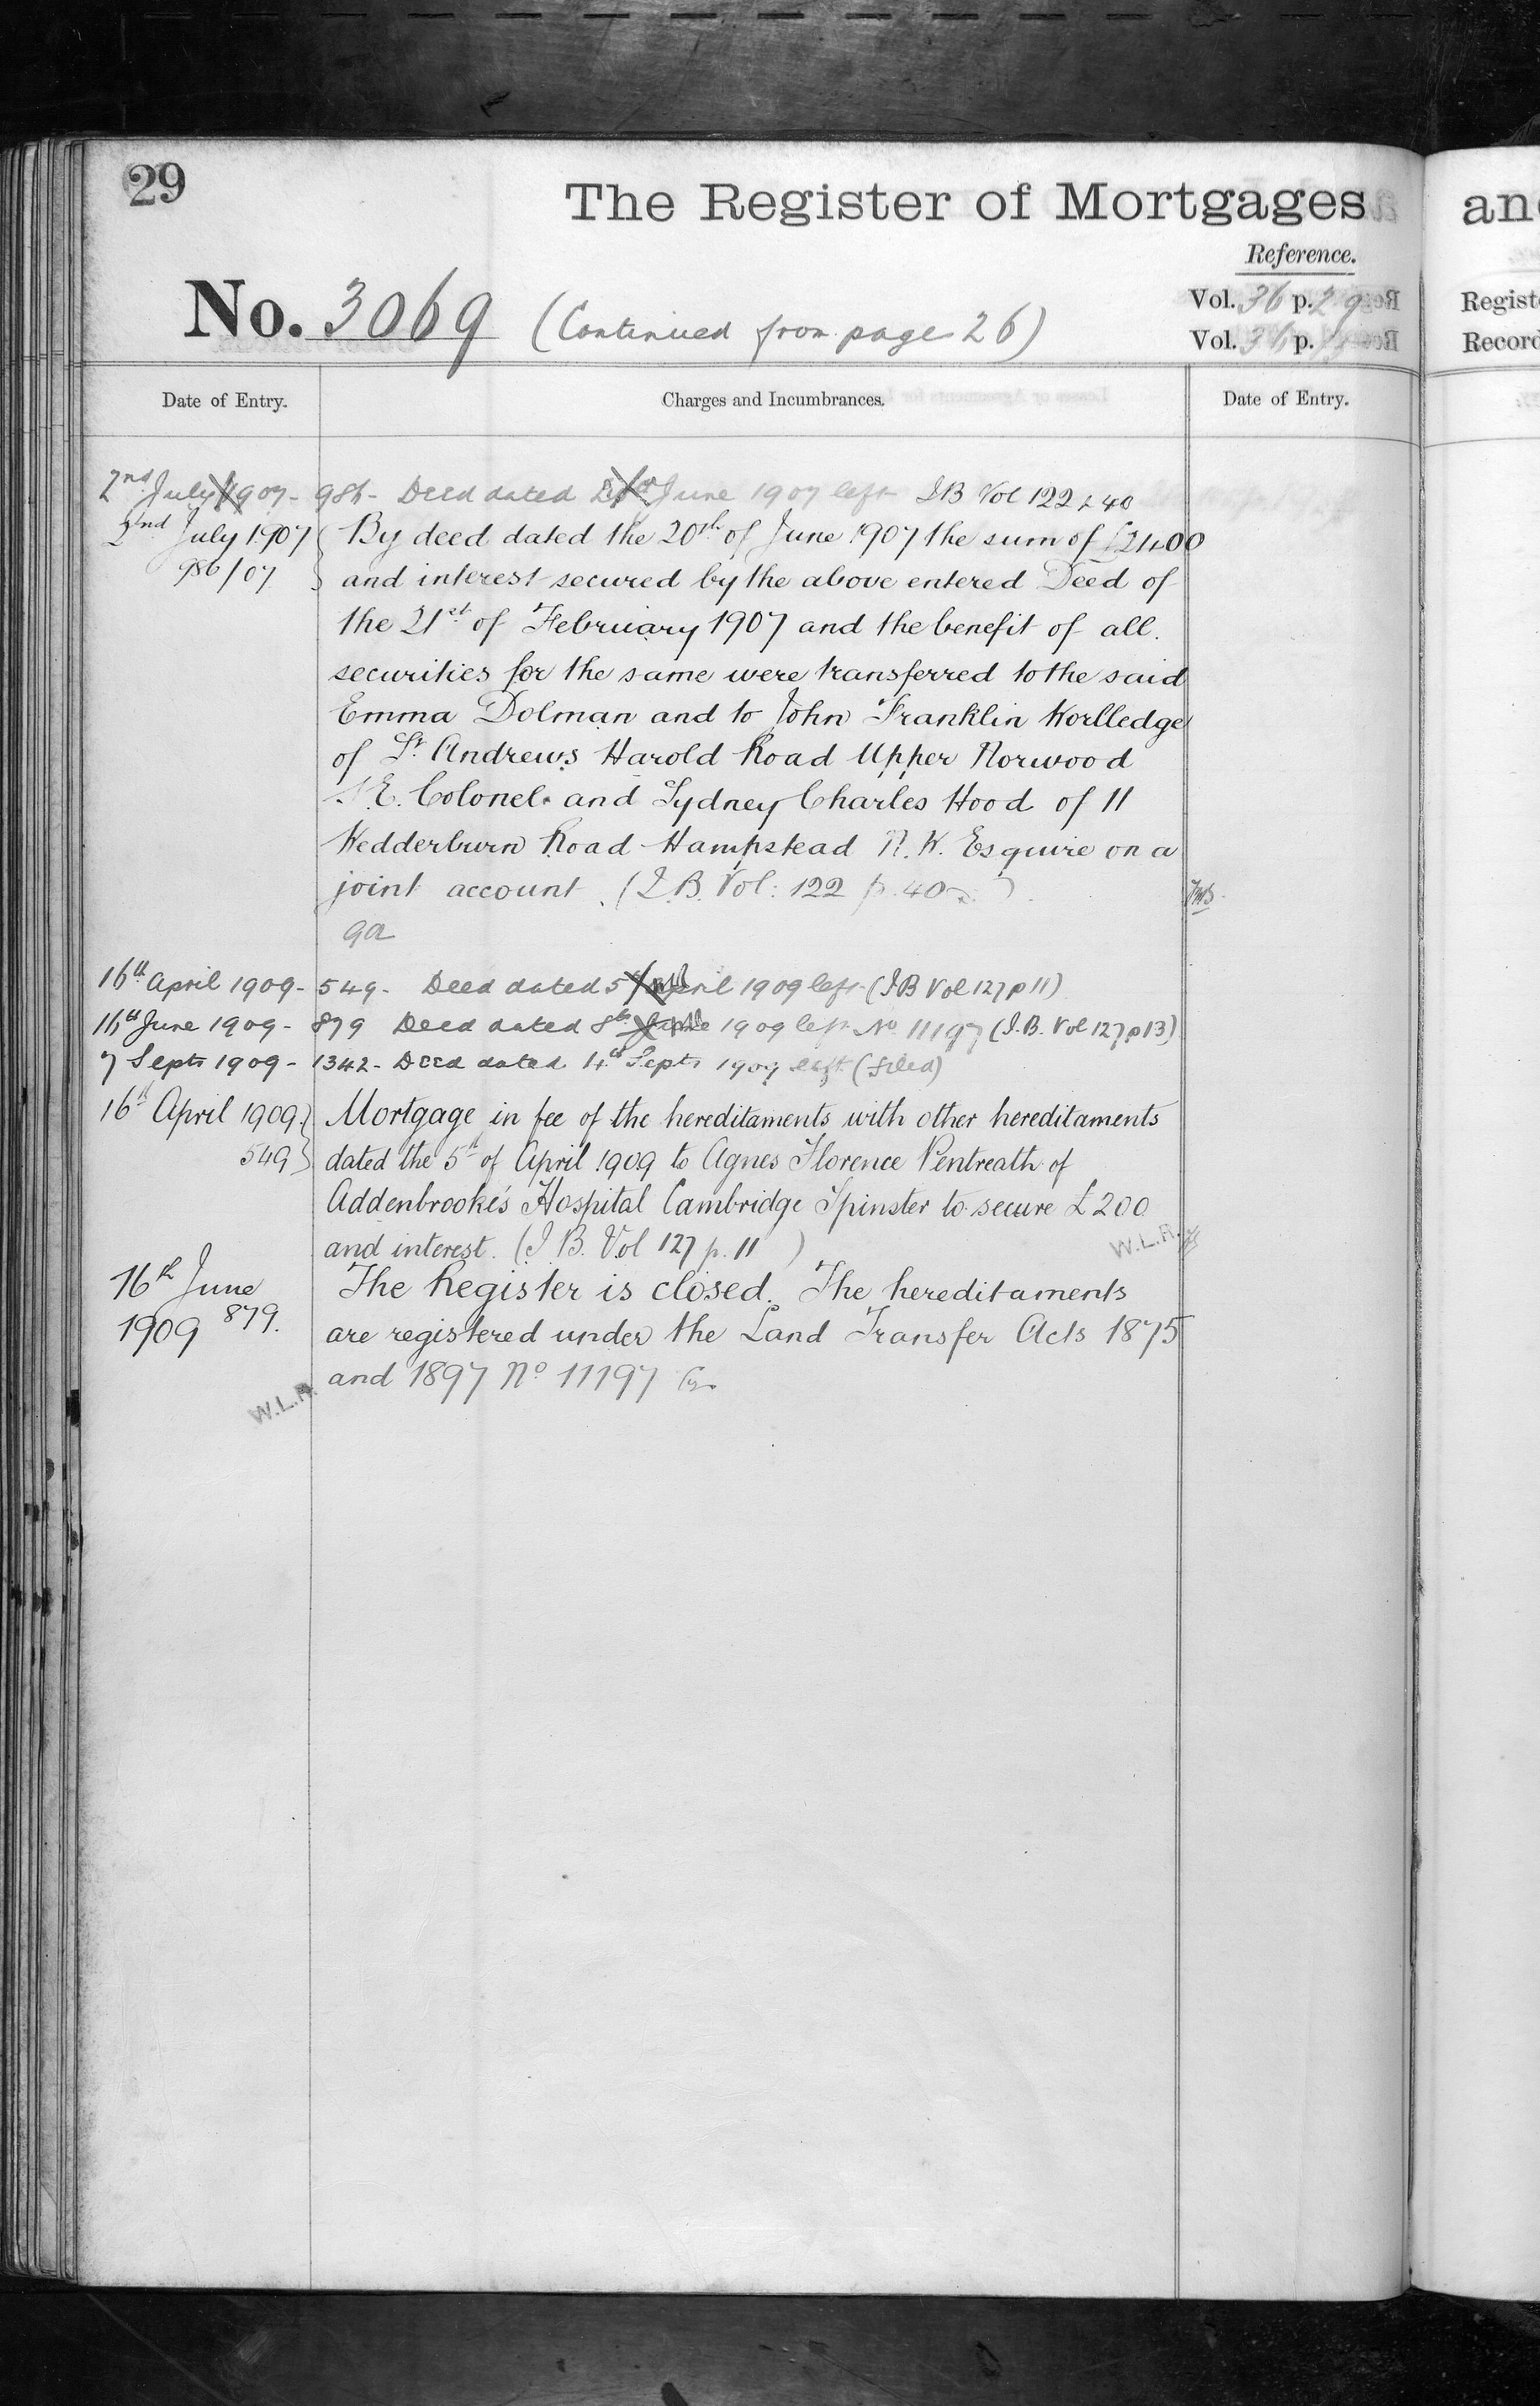 29
The Register of Mortgages
an
Reference.
No. 3069 (Continued from page 26)
Vol. 36 p. 29
Regist
Vol. 36 p.
Record
Date of Entry.
Charges and Incumbrances.
Date of Entry.
2nd July 1907 - 986 - Deed dated June 1907 left IB Vol 122 p 40
2nd July 1907 By deed dated the 20th of June 1907 the sum of £2400
986/07 and interest secured by the above entered Deed of
the 21st of February 1907 and the benefit of all
securities for the same were transferred to the said
Emma Dolman and to John Franklin Worlledge
of St. Andrews Harold Road Upper Norwood
S.E. Colonel and Sydney Charles Hood of 11
Wedderburn Road Hampstead N.W. Esquire on a
joint account. (I.B. Vol: 122 p. 40)
ga
16th April 1909 - 549 - Deed dated 5th April 1909 left (IB Vol 127 p 11)
16th June 1909 - 879 Deed dated 8th June 1909 left No 11197 (I.B. Vol 127 p 13)
7 Septr 1909 - 1342 - Deed dated 4th Septr 1909 left (filed)
16th April 1909. Mortgage in fee of the hereditaments with other hereditaments
549 dated the 5th of April 1909 to Agnes Florence Pentreath of
Addenbrooke's Hospital Cambridge Spinster to secure £200
and interest. (I B. Vol 127 p. 11)
W.L.R.
16th June The Register is closed. The hereditaments
1909 879. are registered under the Land Transfer Acts 1875
and 1897 No 11197
W.L.R.